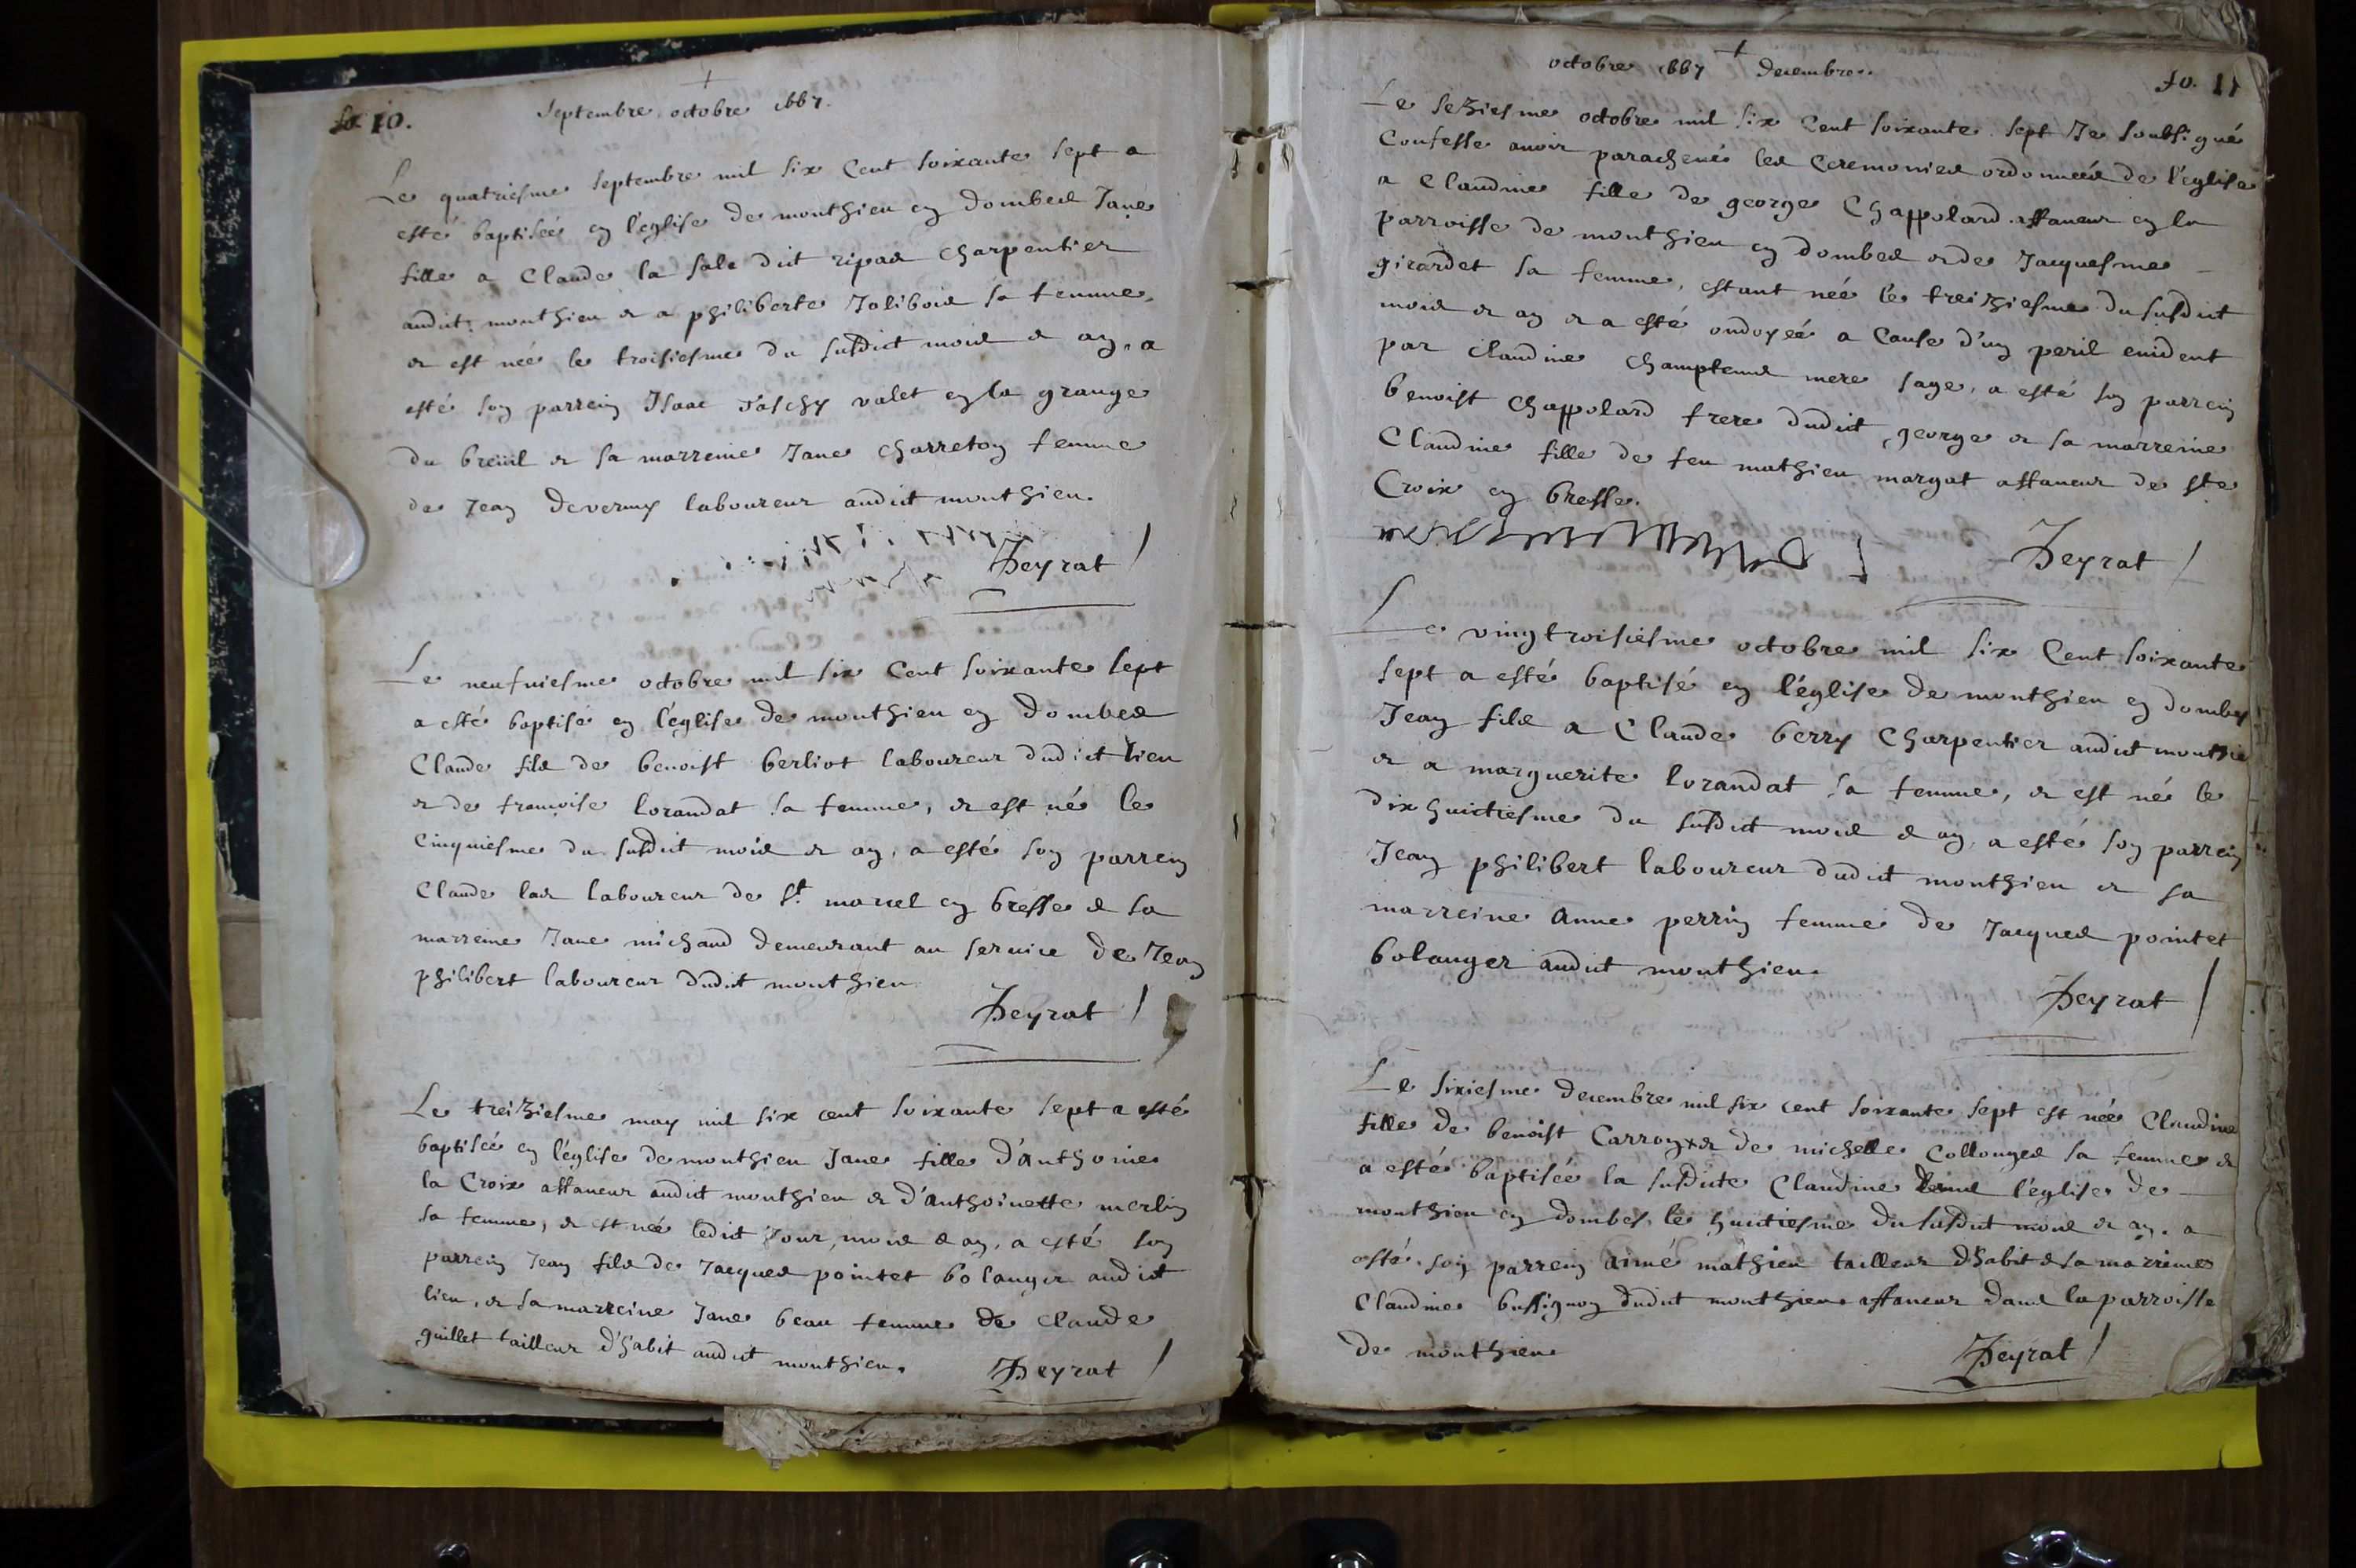 fo 10.
+
Septembre octobre 1667.
Le quatriesme septembre mil six cent soixante sept a
esté baptisée en l'eglise de monthieu en dombes Jane
fille a Claude la sale dit ripas charpentier
audit monthieu & a philiberte Joliboid sa femme,
& est née le troisiesme du susdict mois & an, a
esté son parrein Isaac valet en la grange
du breüil & sa marreine Jane charreton femme
de Jean laboureur audit monthieu.
Deyrat
Le neufuiesme octobre mil six cent soixante sept
a esté baptisé en l'eglise de monthieu en dombes
Claude fils de benoist berliot laboureur dudict lieu
& de françoise lorandat sa femme, & est né le
cinquiesme du susdit mois & an, a esté son parrein
Claude laboureur de St. marcel en bresse & sa
marreine Jane michaud demeurant au seruice de Jean
philibert laboureur dudit monthieu
Deyrat
Le treiziesme may mil six cent soixante sept a esté
baptisée en l'eglise de monthieu Jane fille d'anthoine
la Croix affaneur audit monthieu & d'anthoinette merlin
sa femme, & est née ledit Jour, mois & an, a esté son
parrein Jean fils de Jacques pointet bolanger audict
lieu, & sa marreine Jane beau femme de claude
guillet tailleur d'habit audit monthieu.
Deyrat
+
octobre 1667 decembre.
fo. 11
Le seziesme octobre mil six cent soixante sept Je soubsigné
Confesse auoir paracheué les ceremonies ordonnées de l'eglise
a Claudine fille de george Chappolard affaneur en la
parroisse de monthieu en dombes & de Jacquesme
girardet sa femme, estant née le treiziesme du susdit
mois & an & a esté ondoyée a cause d'un peril euident
par claudine mere sage, a esté son parrein
benoist Chappolard frere dudit george & sa marreine
Claudine fille de feu mathieu margat affaneur de ste
Croix en bresse.
Deyrat
Le vingtroisiesme octobre mil six cent soixante
sept a esté baptisé en l'eglise de monthieu en dombes
Jean fils a Claude berry Charpentier audit monthieu
& a marguerite lorandat sa femme, & est né le
dixhuictiesme du susdit mois & an, a esté son parrein
Jean philibert laboureur dudit monthieu & sa
marreine anne perrin femme de Jacques pointet
bolanger audit monthieu.
Deyrat
Le sixiesme decembre mil six cent soixante sept est née Claudine
fille de benoist Carron + & de michelle Collonges sa femme &
a esté baptisée la susdite Claudine dans l'eglise de
monthieu en dombes le huictiesme du susdit mois & an. a
esté son parrein aimé mathieu tailleur d'habit & sa marreine
Claudine bussignon dudit monthieu + affaneur dans la parroisse
de monthieu
Deyrat